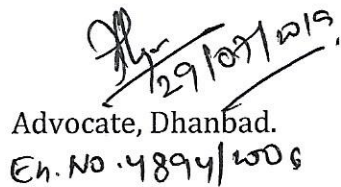 29/07/2019
Advocate, Dhanbad.
En. No. 4894/2006